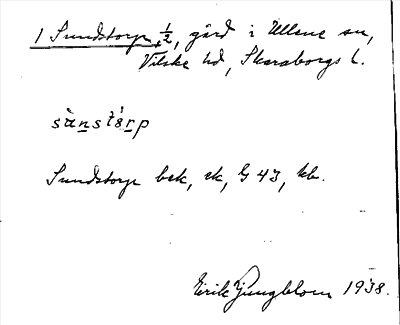 1 Sundstorp 1/2, gård i Ullene sn,
Vilske hd, Skaraborgs l.
sùnstárp
Sundstorp bek, ek, G 43, kb.
Erik Ljungblom 1938.